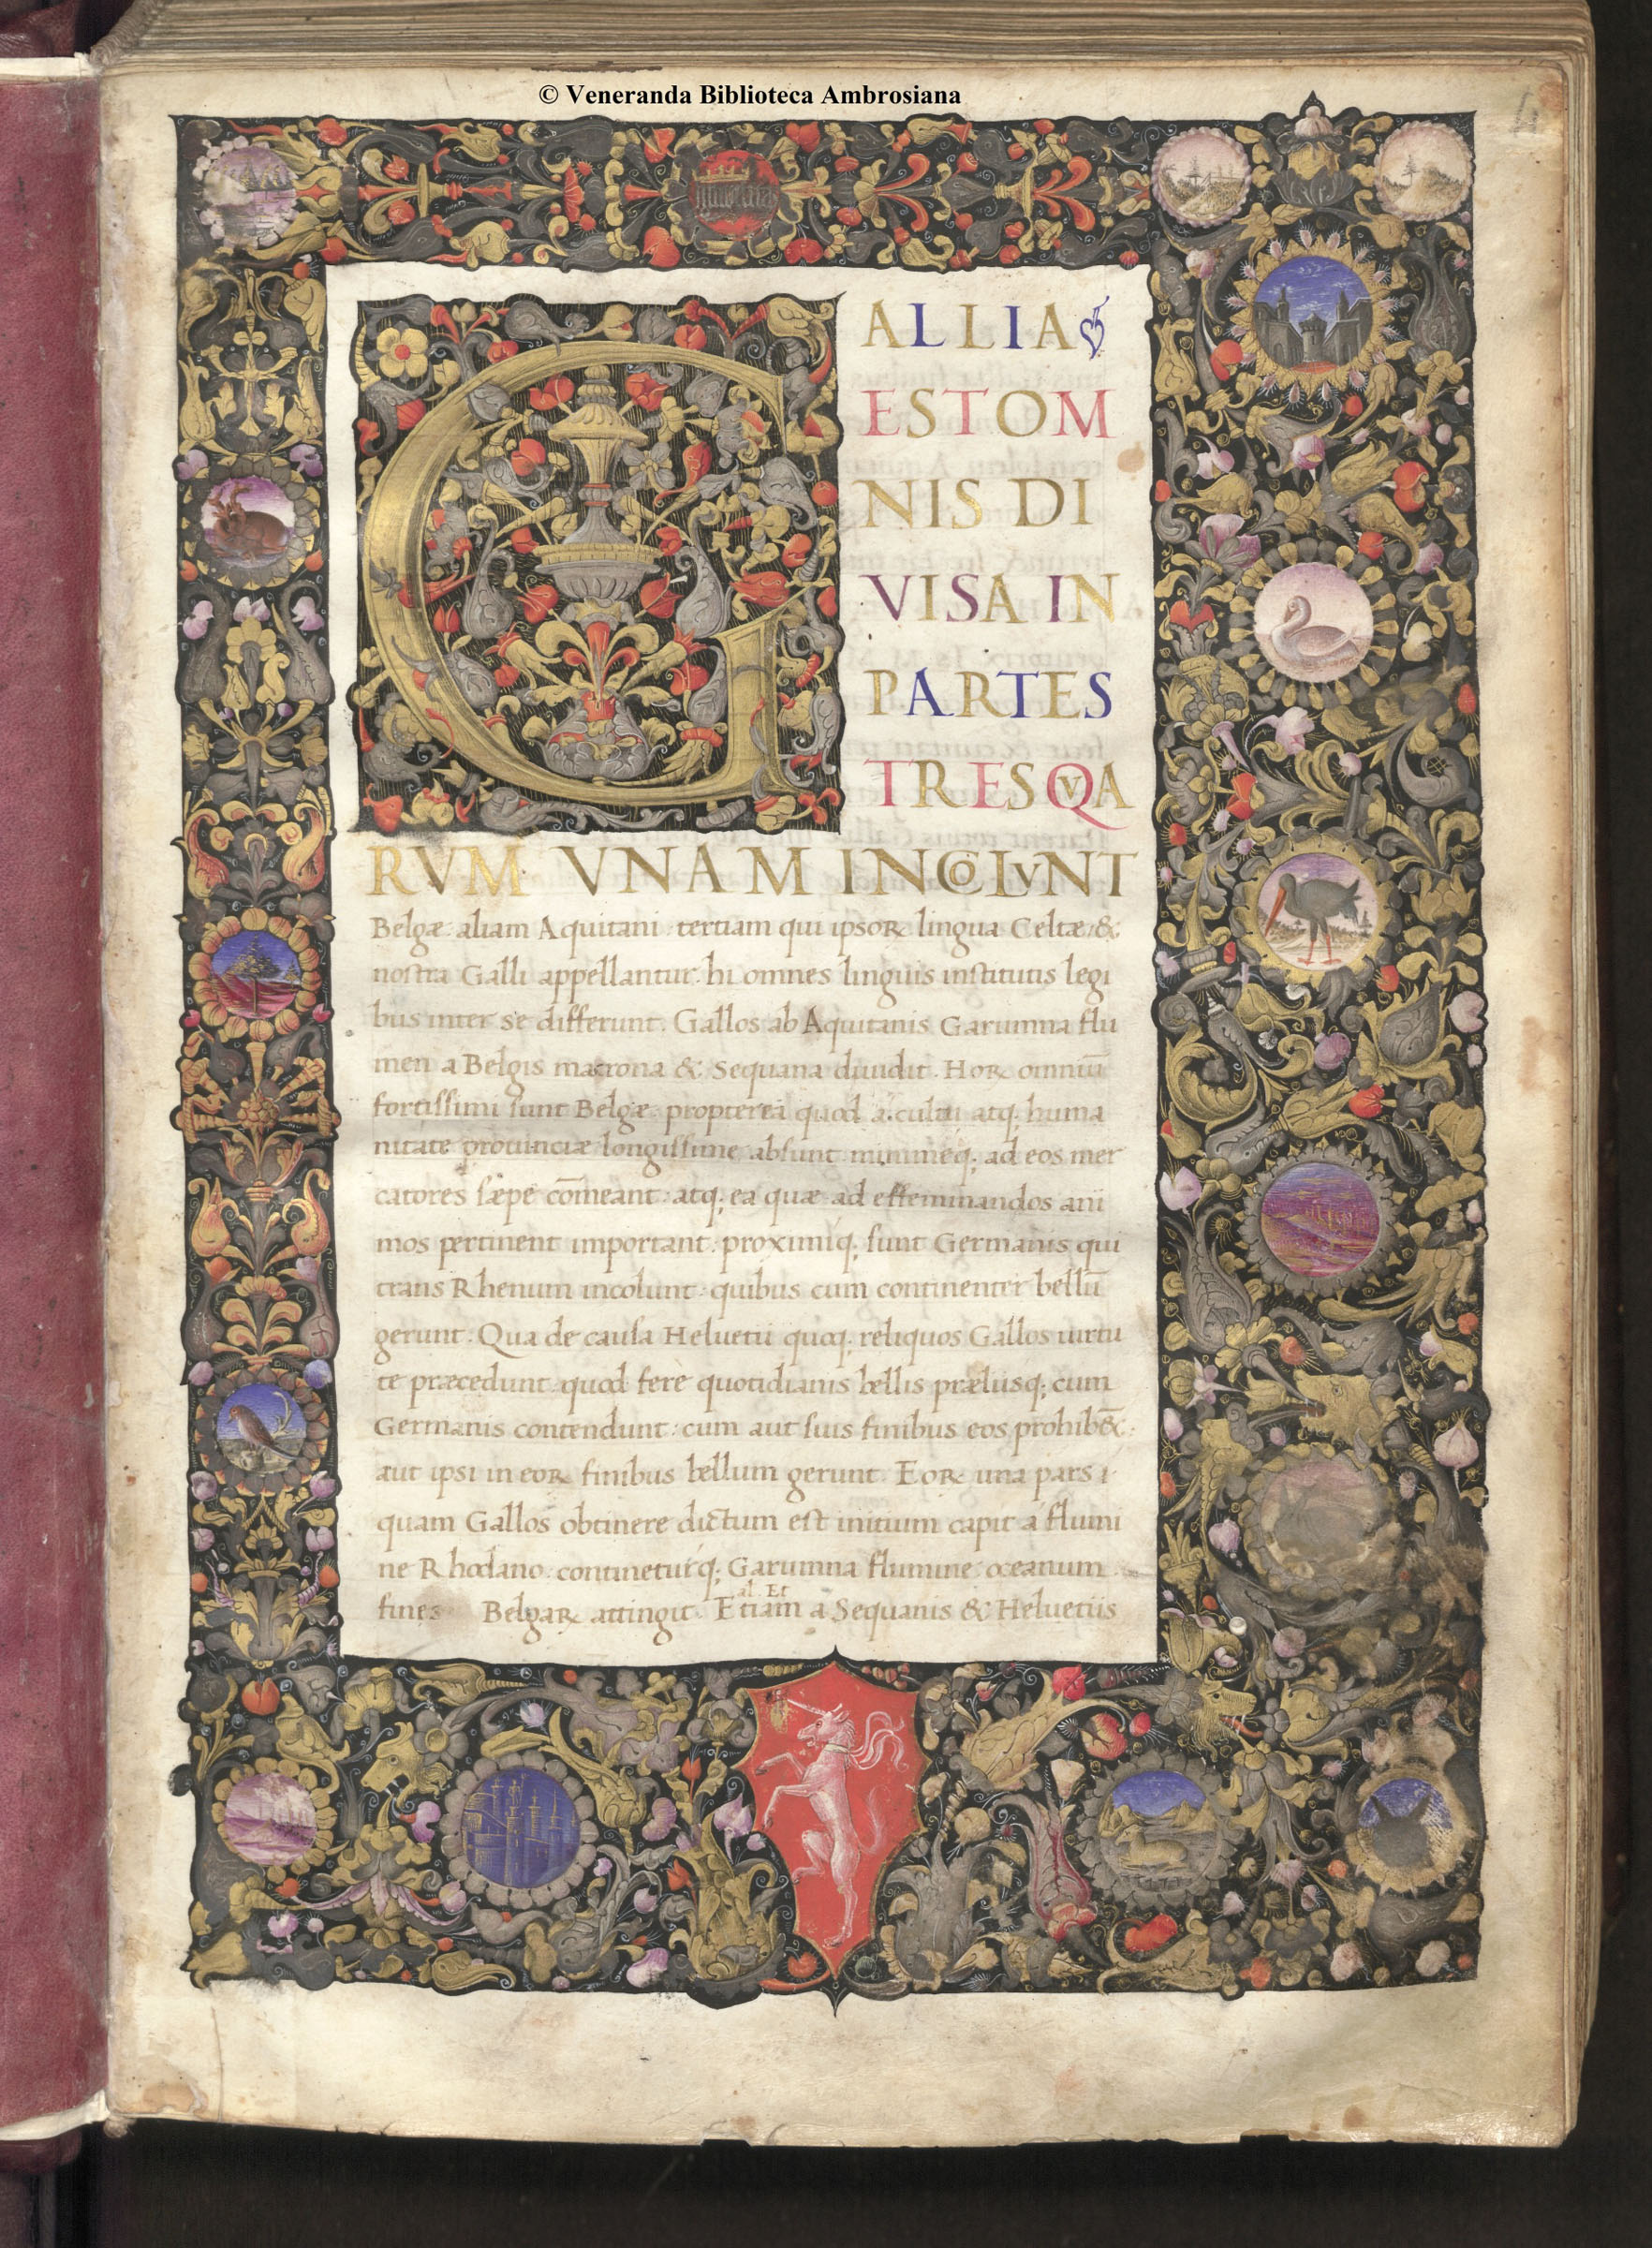 © Veneranda Biblioteca Ambrosiana
GALLIA
EST OM
NIS DI
VISA IN
PARTES
TRES QVA
RVM VNAM INCOLVNT
Belgæ aliam Aquitani tertiam qui ipsoꝝ lingua Celtæ &
nostra Galli appellantur. hi omnes linguis institutis legi
bus inter se differunt. Gallos ab Aquitanis Garumna flu
men a Belgis matrona & Sequana diuidit. Hoꝝ omniū
fortissimi sunt Belgæ propterea quod a cultu atq; huma
nitate prouinciæ longissime absunt minimeq; ad eos mer
catores sæpe cōmeant: atq; ea quæ ad effeminandos ani
mos pertinent important: proximiq; sunt Germanis qui
trans Rhenum incolunt: quibus cum continenter bellū
gerunt. Qua de causa Heluetii quoq; reliquos Gallos uirtu
te præcedunt quod fere quotidianis bellis præliisq; cum
Germanis contendunt: cum aut suis finibus eos prohibē&:
aut ipsi in eoꝝ finibus bellum gerunt. Eoꝝ una pars
quam Gallos obtinere dictum est initium capit a flumi
ne Rhodano: contineturq; Garumna flumine: oceanum
al. Et
fines Belgaꝝ attingit. Etiam a Sequanis & Heluetiis